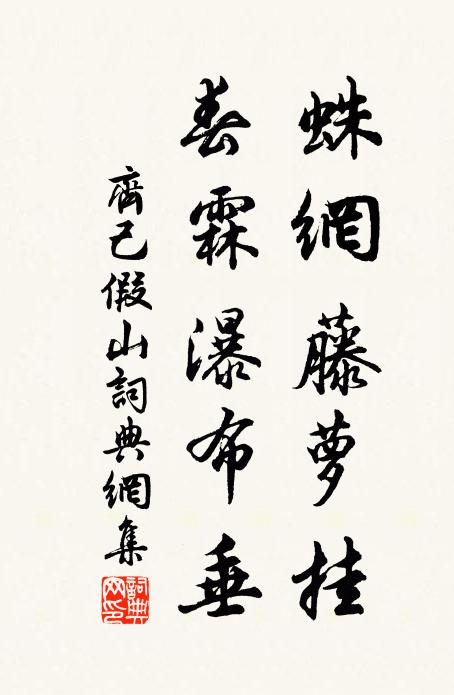 蛛網藤萝挂
春霖瀑布垂
齊己假山詞典網集
詞典網印